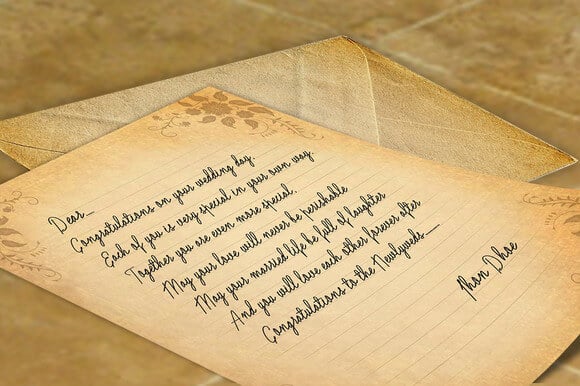 Dear_
Congratulations on your wedding day.
Each of you is very special in your own way
Together you are even more special.
May your love will never be perishable
May your married life be full of laughter
And you will love each other forever after
Congratulations to the Newlyweds__
Jhon Dhoe